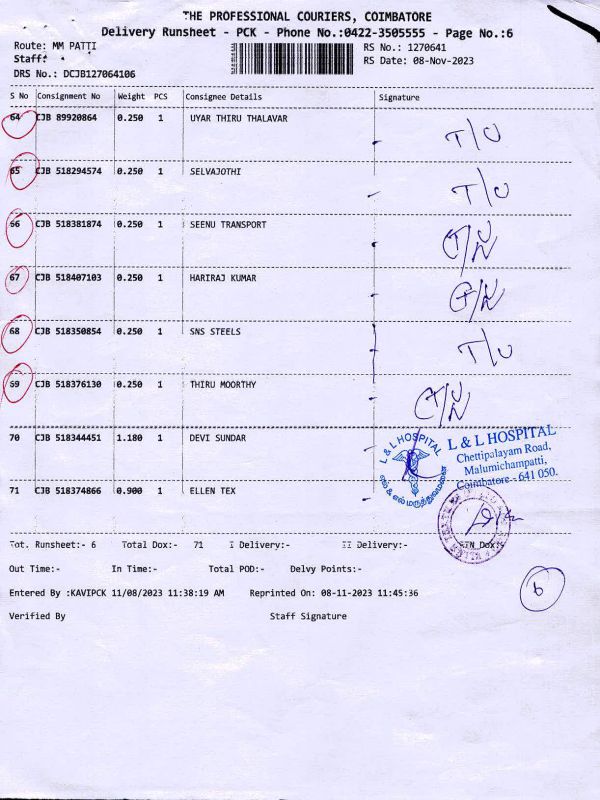 THE PROFESSIONAL COURIERS, COIMBATORE
Delivery Runsheet - PCK - Phone No.:0422-3505555 - Page No.:6
Route: MM PATTI
RS No.: 1270641
Staff:
RS Date: 08-Nov-2023
DRS No.: DCJB127064106
S No Consignment No Weight PCS Consignee Details Signature
64 CJB 89920864 0.250 1 UYAR THIRU THALAVAR T/U
65 CJB 518294574 0.250 1 SELVAJOTHI T/U
66 CJB 518381874 0.250 1 SEENU TRANSPORT
67 CJB 518407103 0.250 1 HARIRAJ KUMAR
68 CJB 518350854 0.250 1 SNS STEELS T/U
69 CJB 518376130 0.250 1 THIRU MOORTHY
70 CJB 518344451 1.180 1 DEVI SUNDAR
L & L HOSPITAL
எல் & எல் மருத்துவமனை
L & L HOSPITAL
Chettipalayam Road,
Malumichampatti,
Coimbatore - 641 050.
71 CJB 518374866 0.900 1 ELLEN TEX
Tot. Runsheet:- 6 Total Dox:- 71 I Delivery:- II Delivery:- RTN Dox:
Out Time:- In Time:- Total POD:- Delvy Points:-
6
Entered By :KAVIPCK 11/08/2023 11:38:19 AM Reprinted On: 08-11-2023 11:45:36
Verified By Staff Signature